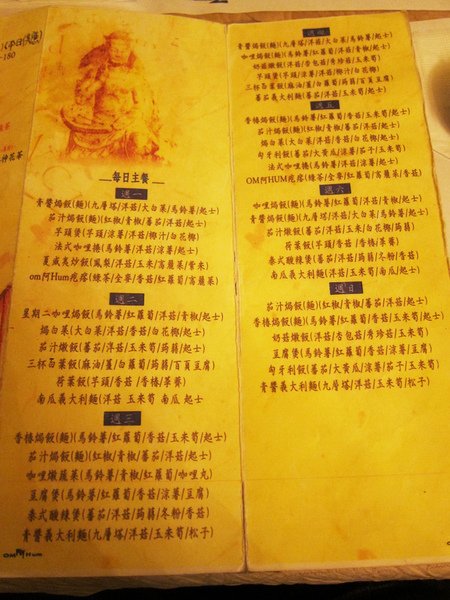 每日主餐
週一
青醬焗飯(麵)(九層塔/洋菇/大白菜/馬鈴薯/起士)
茄汁焗飯(麵)(紅椒/青椒/蕃茄/洋菇/起士)
芋頭煲(芋頭/涼薯/洋菇/椰汁/白花椰)
法式咖哩捲(馬鈴薯/洋菇/涼薯/起士)
夏威夷炒飯(鳳梨/洋菇/玉米/高麗菜/素米)
om阿Hum疙瘩(綠茶/全麥/香菇/紅蘿蔔/高麗菜)
週二
星期二咖哩焗飯(馬鈴薯/紅蘿蔔/洋菇/青椒/起士)
焗白菜(大白菜/洋菇/香菇/白花椰/起士)
茄汁燉飯(蕃茄/洋菇/玉米筍/蒟蒻/起士)
三杯百葉飯(麻油/薑/白蘿蔔/蒟蒻/百頁豆腐)
荷葉飯(芋頭/香菇/香椿/蓽薺)
南瓜義大利麵(洋菇 玉米筍 南瓜 起士
週三
香椿焗飯(麵)(馬鈴薯/紅蘿蔔/香菇/玉米筍/起士)
茄汁焗飯(麵)(紅椒/青椒/蕃茄/洋菇/起士)
咖哩燉蔬菜(馬鈴薯/青椒/紅蘿蔔/咖哩丸)
豆腐煲(馬鈴薯/紅蘿蔔/香菇/涼薯/豆腐)
泰式酸辣煲(蕃茄/洋菇/蒟蒻/冬粉/香菇)
青醬義大利麵(九層塔/洋菇/玉米筍/松子)
OM Hum
週四
青醬焗飯(麵)(九層塔/洋菇/大白菜/馬鈴薯/起士)
咖哩焗飯(麵)(馬鈴薯/紅蘿蔔/洋菇/青椒/起士)
奶菇燉飯(洋菇/杏包菇/秀珍菇/玉米筍)
芋頭煲(芋頭/涼薯/洋菇/椰汁/白花椰)
三杯百葉飯(麻油/薑/白蘿蔔/蒟蒻/百頁豆腐)
蕃茄義大利麵(蕃茄/洋菇/玉米筍/起士)
週五
香椿焗飯(麵)(馬鈴薯/紅蘿蔔/香菇/玉米筍/起士)
茄汁焗飯(麵)(紅椒/青椒/蕃茄/洋菇/起士)
焗白菜(大白菜/洋菇/香菇/白花椰/起士)
匈牙利飯(蕃茄/大黃瓜/涼薯/茄子/玉米筍)
法式咖哩捲(馬鈴薯/洋菇/涼薯/起士)
OM阿HUM疙瘩(綠茶/全麥/紅蘿蔔/高麗菜/香菇)
週六
咖哩焗飯(麵)(馬鈴薯/紅蘿蔔/洋菇/青椒/起士)
青醬焗飯(麵)(九層塔/洋菇/大白菜/馬鈴薯/起士)
茄汁燉飯(蕃茄/洋菇/玉米筍/白花椰/蒟蒻)
荷葉飯(芋頭/香菇/香椿/蓽薺)
泰式酸辣煲(蕃茄/洋菇/蒟蒻/冬粉/香菇)
南瓜義大利麵(洋菇/玉米筍/南瓜/起士)
週日
茄汁焗飯(麵)(紅椒/青椒/蕃茄/洋菇/起士)
香椿焗飯(麵)(馬鈴薯/紅蘿蔔/香菇/玉米筍/起士)
奶菇燉飯(洋菇/杏包菇/秀珍菇/玉米筍)
豆腐煲(馬鈴薯/紅蘿蔔/香菇/涼薯/豆腐)
匈牙利飯(蕃茄/大黃瓜/涼薯/茄子/玉米筍)
青醬義大利麵(九層塔/洋菇/玉米筍/松子)